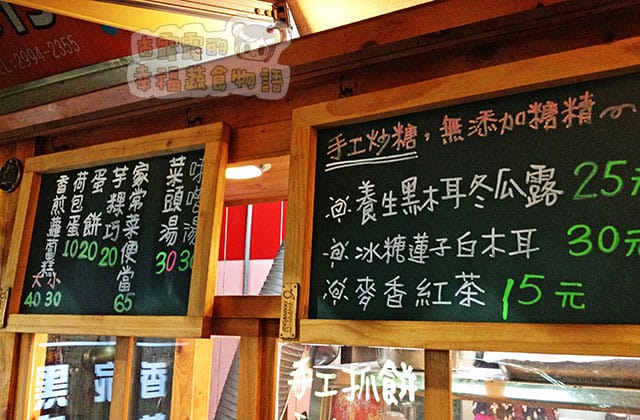 TEL:2994-2355
幸福蔬食物語
手工炒糖，無添加糖精~
養生黑木耳冬瓜露 25元
冰糖蓮子白木耳 30元
麥香紅茶 15元
菜頭湯 30
家常菜便當 65
芋粿巧 20
蛋餅 20
荷包蛋 10
香煎蘿蔔糕 小30 大40
手工抓餅
黑
香